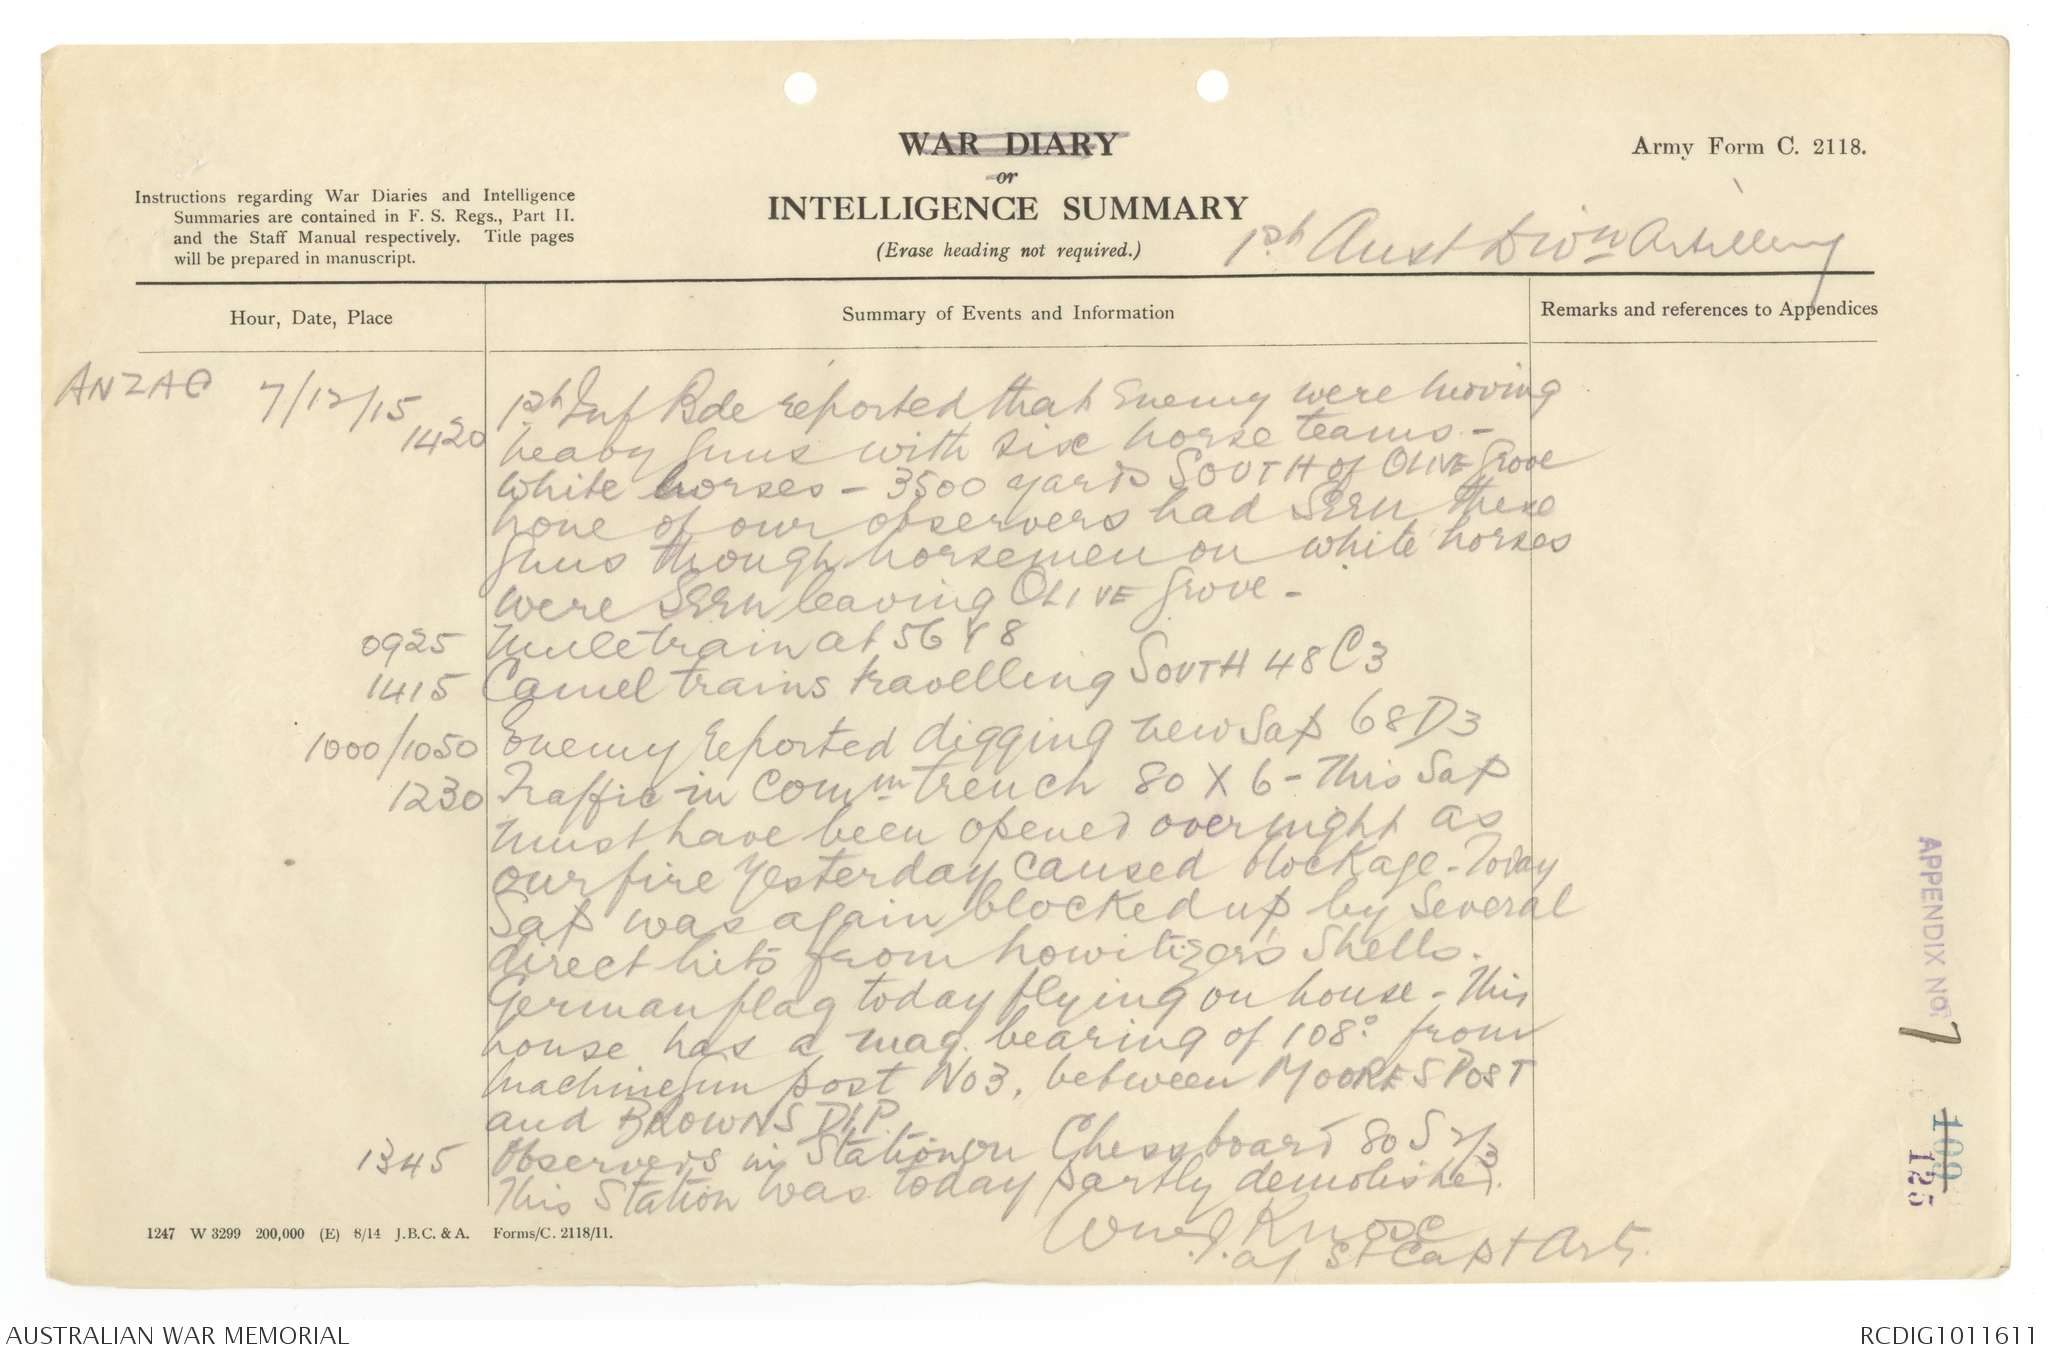 WAR DIARY
or
INTELLIGENCE SUMMARY
(Erase heading not required.)
Army Form C. 2118.
Instructions regarding War Diaries and Intelligence
Summaries are contained in F. S. Regs., Part II.
and the Staff Manual respectively. Title pages
will be prepared in manuscript.
1st Aust Divn Artillery
Hour, Date, Place
Summary of Events and Information
Remarks and references to Appendices
ANZAC 7/12/15
1420 1st Inf Bde reported that Enemy were moving
heavy guns with six horse teams -
white horses - 3500 yards SOUTH of OLIVE Grove
none of our observers had SEEN these
guns though horsemen on white horses
were SEEN leaving OLIVE Grove -
0925 Muletrain at 56 Y 8
1415 Camel trains travelling SOUTH 48 C3
1000/1050 Enemy reported digging new Sap 68D3
1230 Traffic in Commn trench 80 X 6 - This Sap
must have been opened overnight as
our fire yesterday caused blockage - Today
Sap was again blocked up by several
direct hits from howitzers shells.
German flag today flying on house - This
house has a mag. bearing of 108° from
machinegun post No3, between MOORES POST
and BROWNS DIP.
1345 Observers in Station on Chessboard 80 S 2/3
This Station was today partly demolished.
Wm J. Knox
a/ St Capt Arty.
1247 W 3299 200,000 (E) 8/14 J.B.C. & A. Forms/C. 2118/11.
APPENDIX No. 7
109
125
AUSTRALIAN WAR MEMORIAL
RCDIG1011611